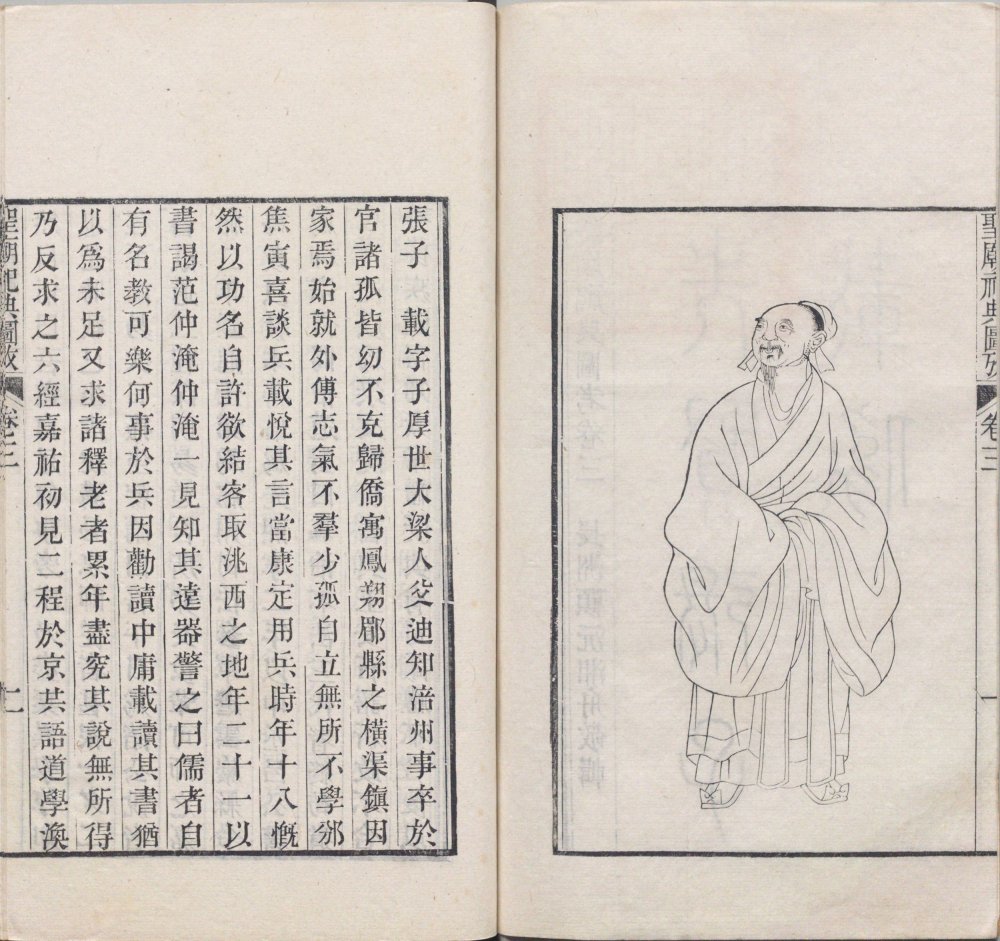 聖廟祀典圖攷
卷三
一
張子 載字子厚世大梁人父迪知涪州事卒於
官諸孤皆幼不克歸僑寓鳳翔郿縣之橫渠鎮因
家焉始就外傅志氣不羣少孤自立無所不學邠
焦寅喜談兵載悅其言當康定用兵時年十八慨
然以功名自許欲結客取洮西之地年二十一以
書謁范仲淹仲淹一見知其遠器警之曰儒者自
有名教可樂何事於兵因勸讀中庸載讀其書猶
以爲未足又求諸釋老者累年盡究其說無所得
乃反求之六經嘉祐初見二程於京共語道學渙
聖廟祀典圖攷
卷三